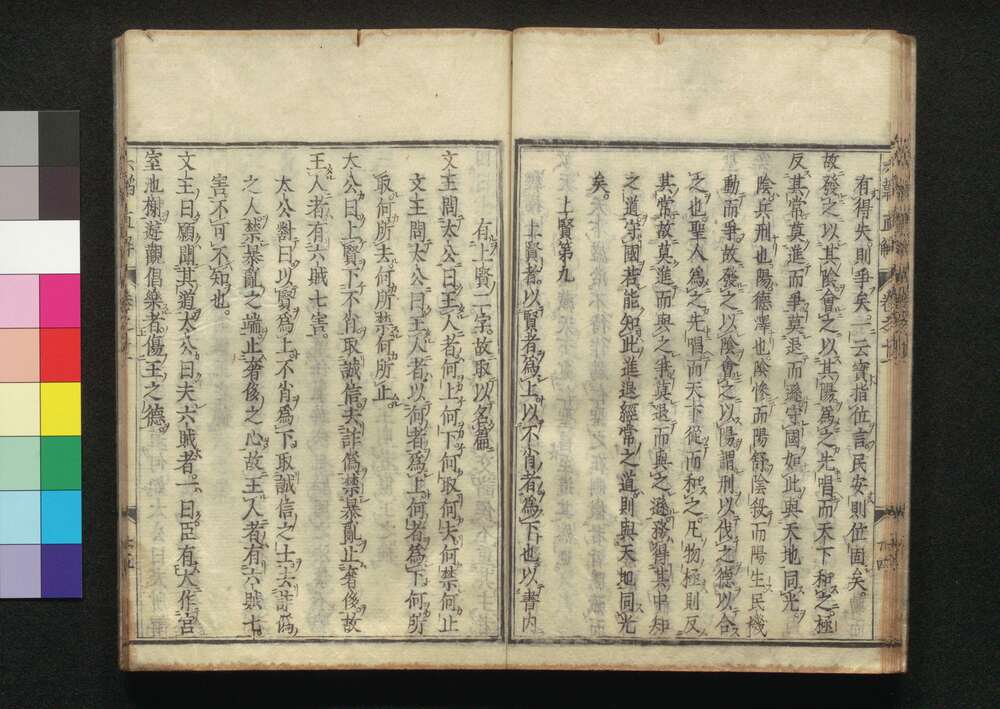 有得失則爭矣一云寶指位言民安則位固矣
故發之以其陰會之以其陽爲之先唱而天下和之極
反其常莫進而爭莫退而遜守國如此與天地同光
陰兵刑也陽德澤也陰慘而陽舒陰殺而陽生民機
動而爭故發之以陰會之以陽謂刑以伐之德以合
之也聖人爲之先唱而天下從而和之凡物極則反
其常故莫進而與之爭莫退而與之遜務得其中知
之道守國者能知此進退經常之道則與天地同光
矣
上賢第九
上賢者以賢者爲上以不肖者爲下也以書內
有上賢二字故取以名篇
文王問太公曰王人者何上何下何取何去何禁何止
文王問太公曰王人者以何者爲上何者爲下何所
取何所去何所禁何所止
太公曰上賢下不肖取誠信去詐僞禁暴亂止奢侈故
王人者有六賊七害
太公對曰以賢爲上不肖爲下取誠信之士去詐僞
之人禁暴亂之端止奢侈之心故王人者有六賊七
害不可不知也
文王曰願聞其道太公曰夫六賊者一曰臣有大作宮
室池榭遊觀倡樂者傷王之德